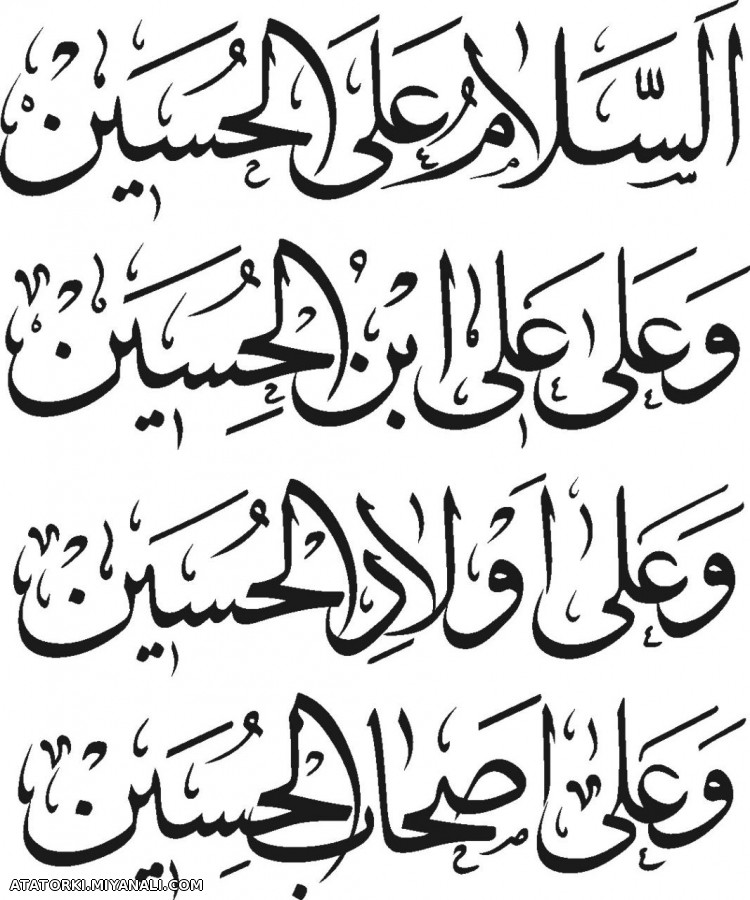 اَلسَّلامُ عَلَى الحُسَین
وَعَلى عَلى ابْنُ الحِسُین
وَعَلى اَوْلادِ الحُسَین
وَعَلى اَصحاب الحِسُین
ATATORKI.MIYANALI.COM